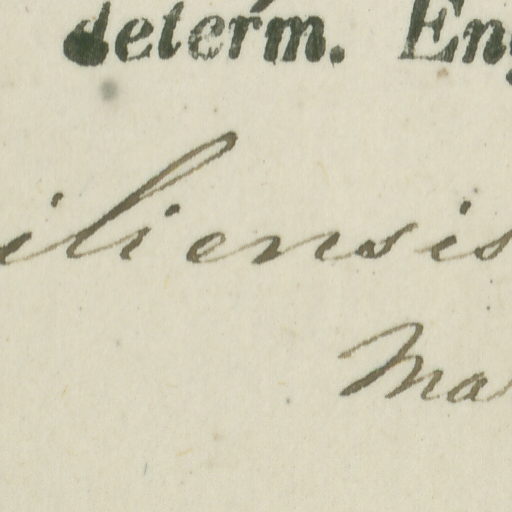 determ. Eng
iliensis
Ma